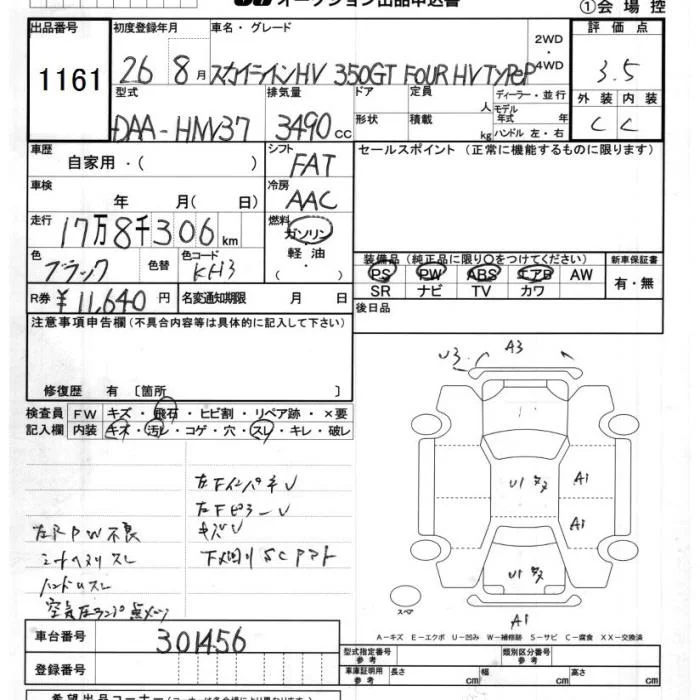 オークション出品申込書
①会場控
出品番号 初度登録年月 車名・グレード 評価点
1161 26 8月 スカイラインHV 350GT FOUR HV TYPeP 2WD・4WD 3.5
型式 排気量 ドア形状 定員 人 積載 kg ディーラー・並行 モデル年式 年 ハンドル 左・右 外装 内装
DAA-HNV37 3490cc C C
車歴 自家用・( ) シフト FAT セールスポイント (正常に機能するものに限ります)
車検 年 月( 日) 冷房 AAC
走行 17万8千306km 燃料 ガソリン・軽油・( )
色 ブラック 色替 色コード KH3
装備品 (純正品に限り○をつけてください) 新車保証書
PS PW ABS エアB AW 有・無
SR ナビ TV カワ
R券 ¥11,640円 名変通知期限 月 日 後日品
注意事項申告欄 (不具合内容等は具体的に記入して下さい)
修復歴 有 〔箇所 〕
検査員記入欄 FW キズ・飛石・ヒビ割・リペア跡・×要
内装 キズ・汚レ・コゲ・穴・スレ・キレ・破レ
U3 A3
U1 A1
A1
U1
A1
スペア
左FインパネU
左FピラーU
キズU
左R PW不良
ハンドルスレ
空気圧ランプ点
A-キズ E-エクボ U-凹み W-補修跡 S-サビ C-腐食 XX-交換済
車台番号 301456
登録番号
型式指定番号 参考 類別区分番号 参考
車庫証明用 参考 長さ cm 幅 cm 高さ cm
希望出品コーナー